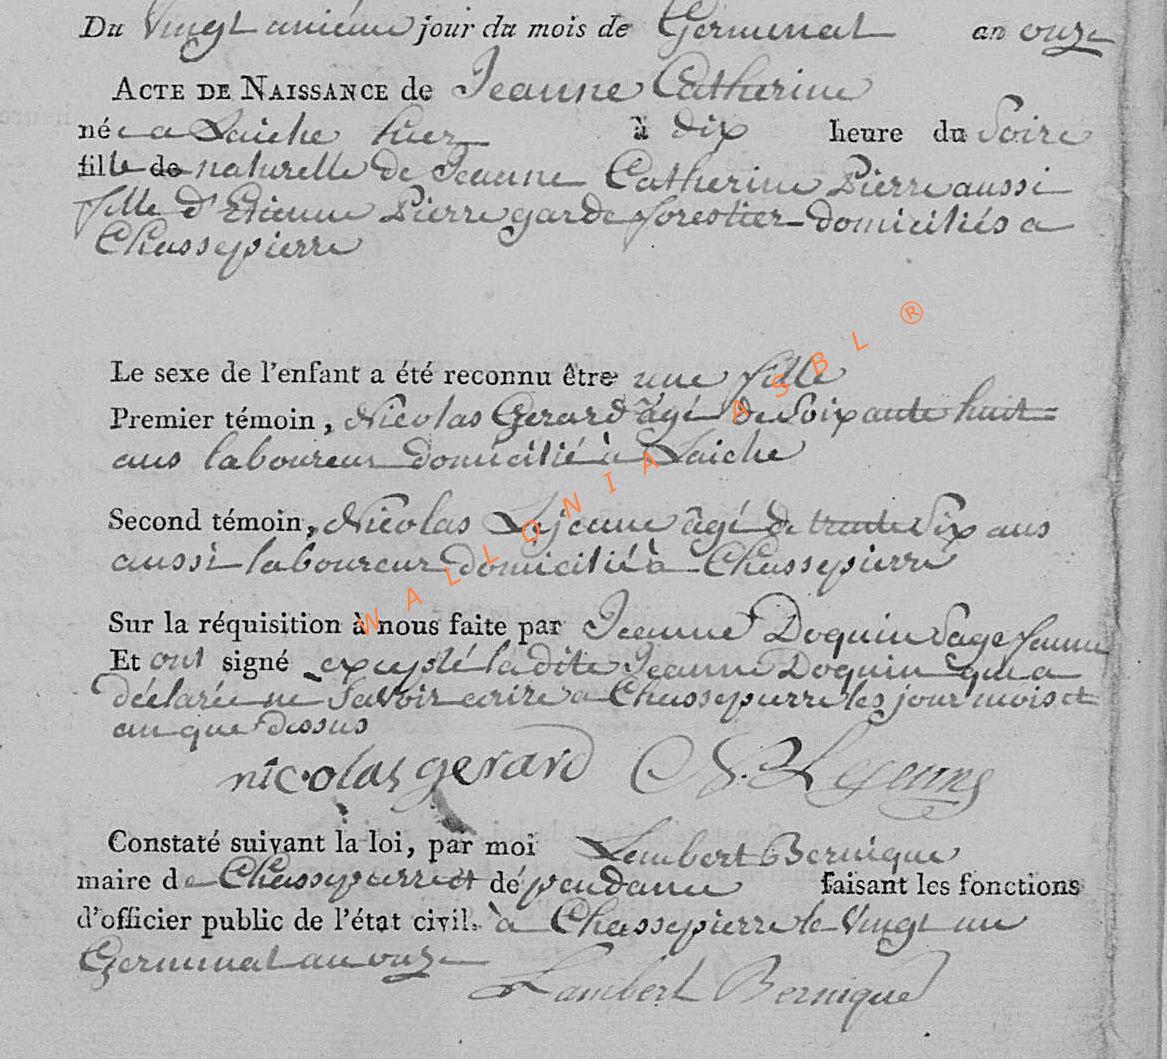 Du Vingt unieme jour du mois de Germinal an onze
ACTE DE NAISSANCE de Jeanne Catherine
née a Laiche hier à dix heure du Soire
fille de naturelle de Jeanne Catherine Pierre aussi
fille d'Etienne Pierre garde forestier domiciliés a
Chassepierre
Le sexe de l'enfant a été reconnu être une fille
Premier témoin, Nicolas Gerard âgé de Soixante huit
ans laboureur domicilié à Laiche
Second témoin, Nicolas Lejeune âgé de trente Six ans
aussi laboureur domicilié à Chassepierre
Sur la réquisition à nous faite par Jeanne Doquin Sage femme
Et ont signé excepté ladite Jeanne Doquin qui a
déclarée ne Savoir ecrire a Chassepierre les jour mois et
an que dessus
nicolas gerard N. Lejeune
Constaté suivant la loi, par moi Lambert Bernique
maire de Chassepierre et dépendance faisant les fonctions
d'officier public de l'état civil. à Chassepierre le Vingt un
Germinal an onze
Lambert Bernique
WALLONIA ASBL ®